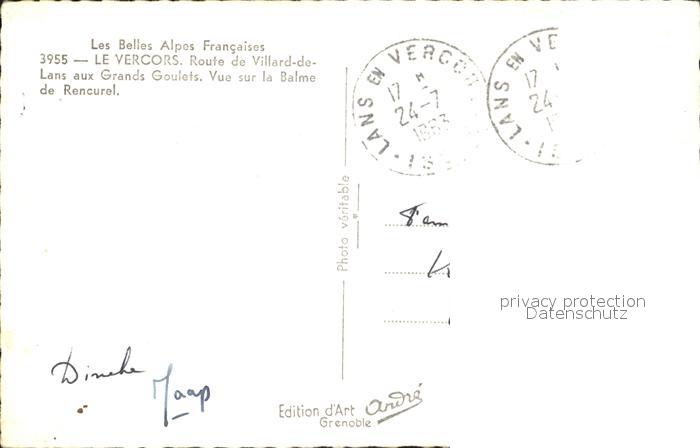 Les Belles Alpes Françaises
3955 — LE VERCORS. Route de Villard-de-
Lans aux Grands Goulets. Vue sur la Balme
de Rencurel.
LANS EN VERCOR
17
24-7
1963
LANS EN VE
17
24
Photo véritable
Fam
privacy protection
Datenschutz
Dineke
Jaap
Edition d'Art André
Grenoble